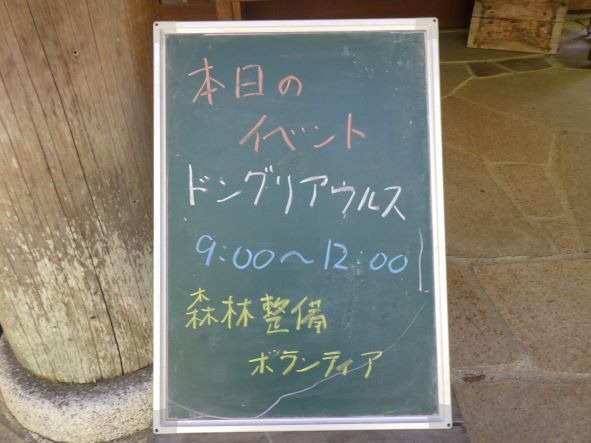 本日の
イベント
ドングリアウルス
9:00～12:00
森林整備
ボランティア